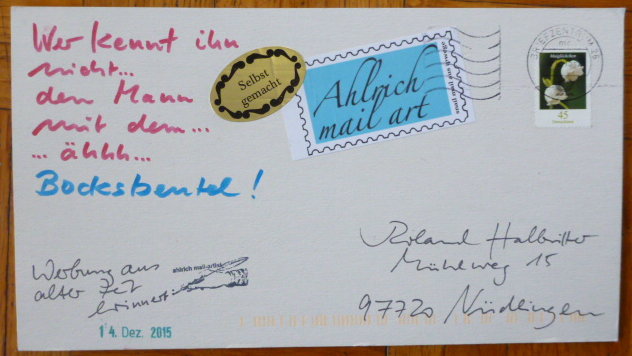 Wer kennt ihn
nicht...
den Mann
mit dem...
... ähhh...
Bocksbeutel!
Selbst
gemacht
Ahlrich
mail art
BRIEFZENTRUM 26
Maiglöckchen
45
Deutschland
Roland Halbritter
Mühlweg 15
97720 Nüdlingen
Werbung aus
alter Zeit
erinnert
ahlrich mail-artist
14. Dez. 2015